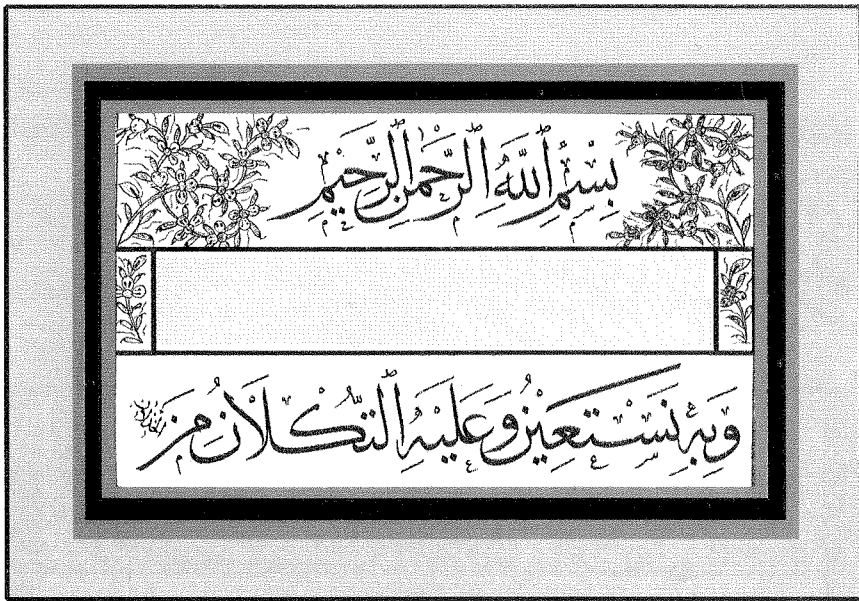 بِسْمِ اللَّهِ الرَّحْمٰنِ الرَّحِيمِ
وَبِهِ نَسْتَعِينُ وَعَلَيْهِ التُّكْلَانُ